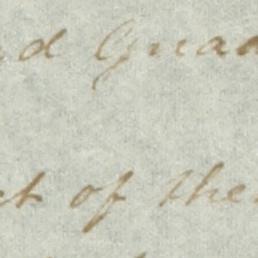 d Guad
ct of the